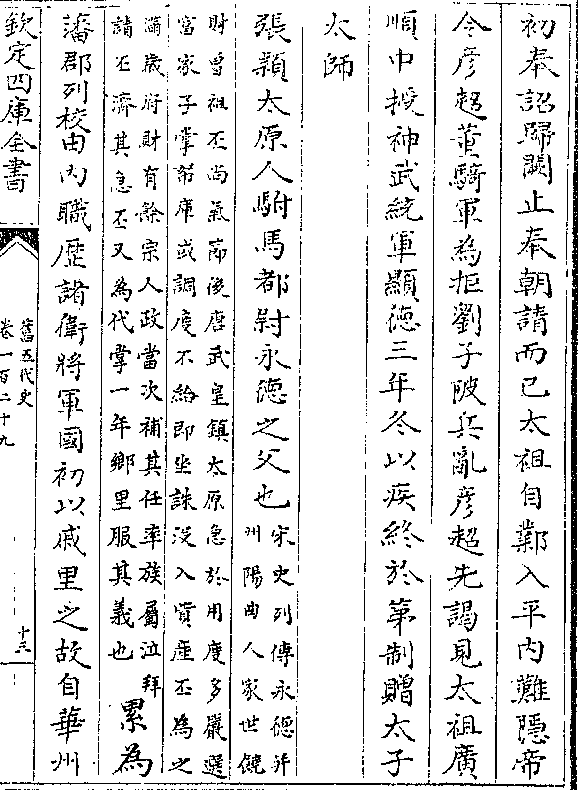 初奉詔歸闕止奉朝請而已太祖自鄴入平内難隱帝
令彦超董騎軍為拒劉子陂兵亂彦超先謁見太祖廣
順中授神武統軍顯德三年冬以疾終於第制贈太子
太師
張穎太原人駙馬都尉永德之父也宋史列傳永德并
州陽曲人家世饒
財曾祖丕尚氣節後唐武皇鎮太原急於用度多嚴選
富家子掌帑庫或調度不給即坐誅没入貲産丕為之
滿歲府財有餘宗人政當次補其任率族屬泣拜
請丕濟其急丕又為代掌一年鄉里服其義也
累為
藩郡列校由内職歴諸衛將軍國初以戚里之故自華州
欽定四庫全書
舊五代史
卷一百二十九
十三